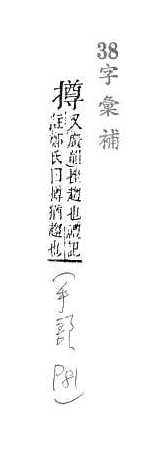 38 字彙補
撙 又廣韻挫趨也禮記
註鄭氏曰撙猶趨也
(手部 P81)